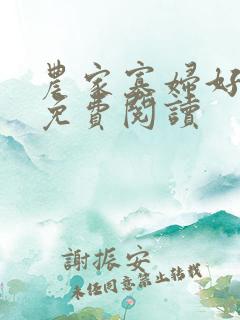 農家寡婦好
免費閱讀
謝振安
未經同意禁止转载